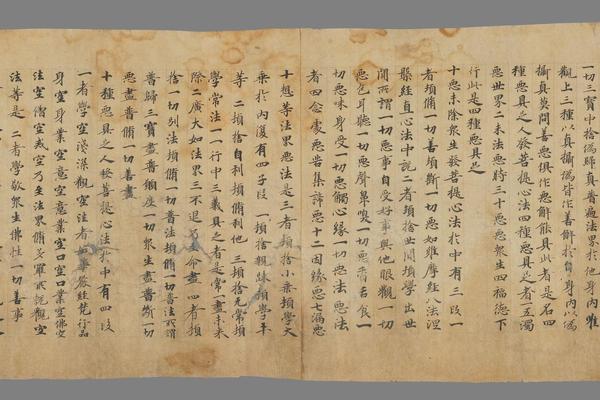 一切三寶中捨偽歸真普遍法界於他身內唯
觀上三種以真攝偽皆作善解於自身內以偽
攝真莫問善惡俱作惡解能具此者是名四
種惡具之人發菩提心法四種惡具足者五濁
惡世界二末法惡時三十惡惡衆生四福德下
行此是四種惡具足
十惡未除衆生發菩提心法於中有三段一
者須脩一切善須斷一切惡如維摩經八法涅
槃經直心法中說二者須捨世間須學出世
間所謂一切惡事自受好事與他眼觀一切
惡色耳聽一切惡聲鼻嗅一切惡香舌食一
切惡味身受一切惡觸心緣一切惡法惡法
者四念處惡苦集諦惡十二因緣惡七漏惡
十想等法界惡法是三者須捨小乘須學大
乘於內復有四子段一須捨親踈須學平
等二須捨自利須脩利他三須捨无常須
學常法一一行中三義具之者是常一盡未來
除二廣大如法界三不退乃至命盡四者須
捨一切別法須脩一切普法須脩一切普法所謂
普歸三寶盡普度一切衆生盡普斷一切
惡盡普脩一切善盡
十種惡具之人發菩提心法於中有四段
一者學空淺深觀空注者如華嚴經梵行品
身空身業空意空意業空口空口業空佛空
法空僧空戒空乃至法界脩多羅所說觀空
法等是二者學敬衆生佛性一切善事